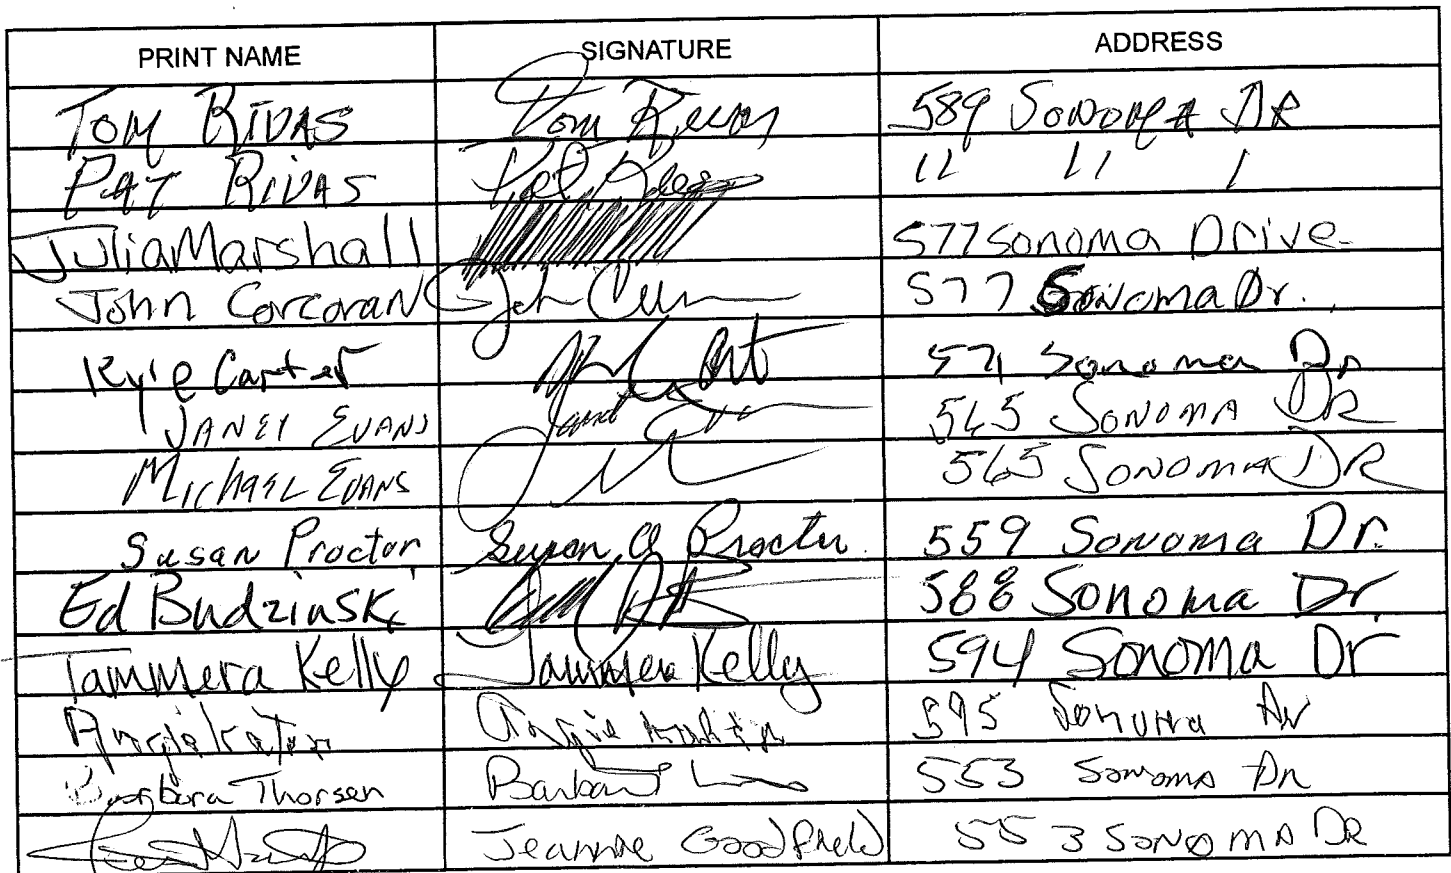 PRINT NAME SIGNATURE ADDRESS
Tom RIVAS Tom Rivas 589 SONOMA DR
PAT RIVAS Pat Rivas 11 11 1
Julia Marshall 577 Sonoma Drive
John Corcoran John 577 Sonoma Dr.
Kyle Carter 571 Sonoma Dr
JANET EVANS Janet 565 SONOMA DR
MICHAEL EVANS 565 SONOMA DR
Susan Proctor Susan Proctor 559 Sonoma Dr.
Ed Budzinski 588 Sonoma Dr.
Tammera Kelly Tammera Kelly 594 Sonoma Dr
Angie 595 Sonoma
Barbara Thorsen Barbara 553 Sonoma Dr
Jeanne Goodfield 553 SONOMA DR